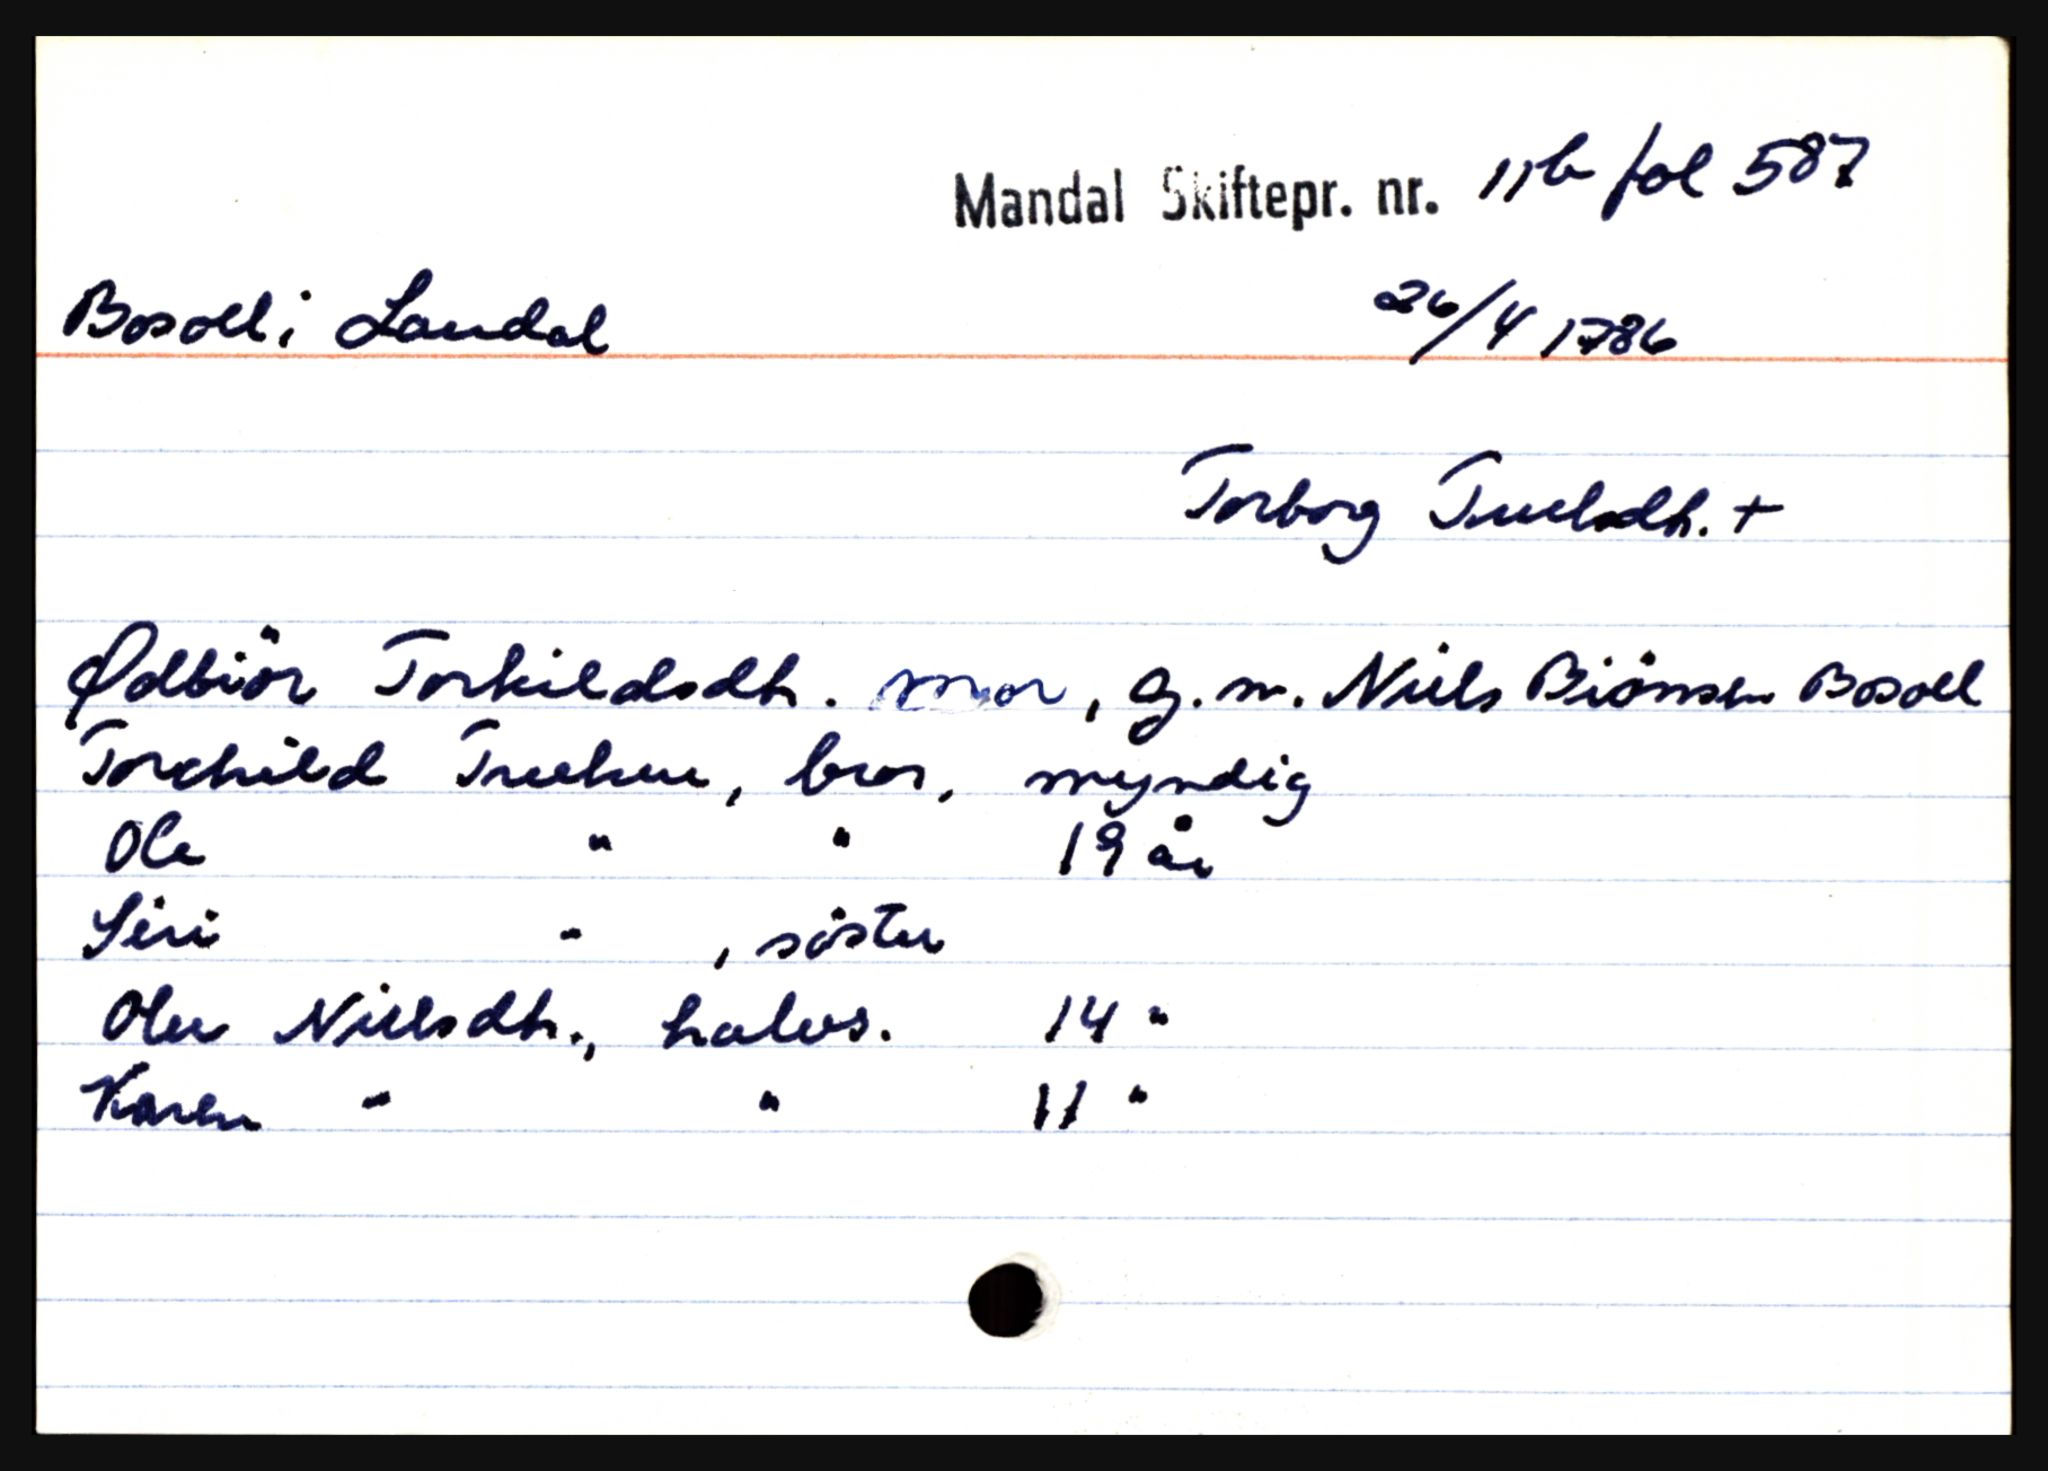 Mandal Skiftepr. nr. 11b fol 587
Bosoll i Laudal 26/4 1786
Torborg Truelsdtr. +
Ødbiör Torkildsdtr. mor, g. m. Niels Biörnsen Bosoll
Torchild Truelsen, bror, myndig
Ole " " 19 år
Siri " , söster
Olen Nielsdtr., halvs. 14 "
Karen " " 11 "